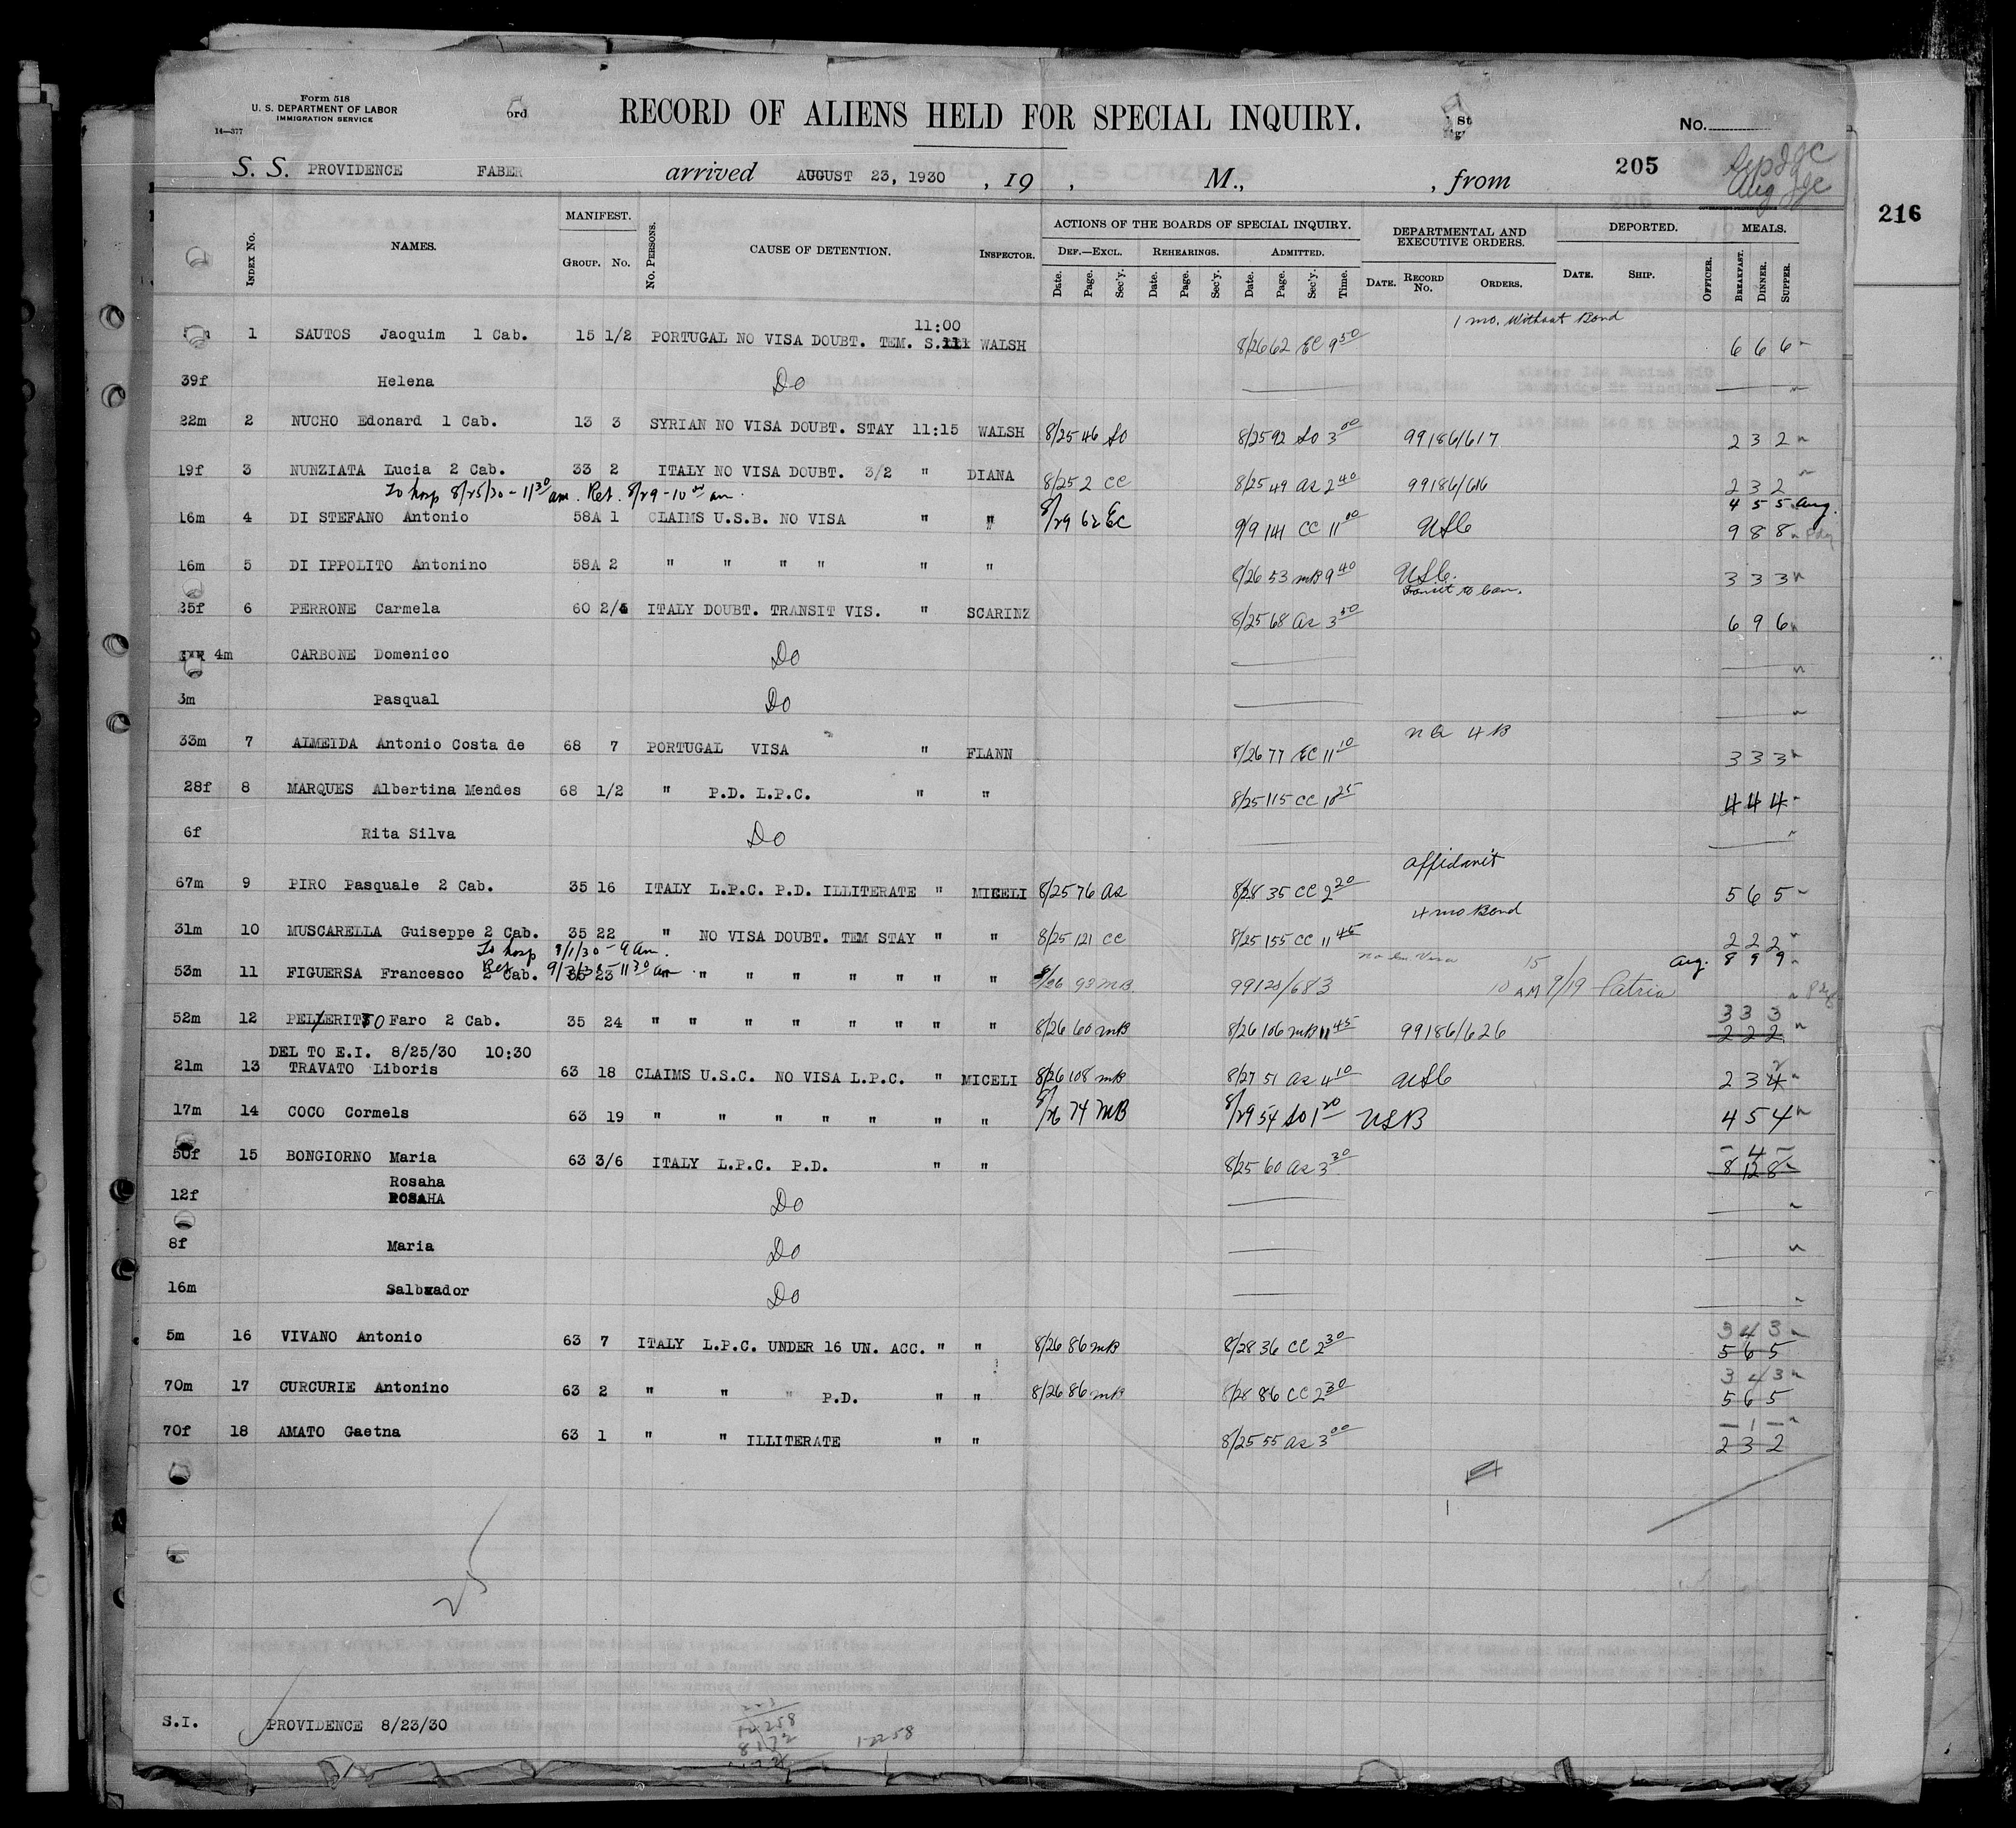 Form 518
U. S. DEPARTMENT OF LABOR
IMMIGRATION SERVICE
14—377
ord
RECORD OF ALIENS HELD FOR SPECIAL INQUIRY.
St
No.
S. S. PROVIDENCE FABER arrived AUGUST 23, 1930 , 19 , M., , from 205
216
INDEX No. NAMES. MANIFEST. GROUP. No. No. PERSONS. CAUSE OF DETENTION. INSPECTOR. ACTIONS OF THE BOARDS OF SPECIAL INQUIRY. DEPARTMENTAL AND EXECUTIVE ORDERS. DEPORTED. MEALS.
DEF.—EXCL. REHEARINGS. ADMITTED.
Date. Page. Sec'y. Date. Page. Sec'y. Date. Page. Sec'y. Time. DATE. RECORD No. ORDERS. DATE. SHIP. OFFICER. BREAKFAST. DINNER. SUPPER.
11:00 1 mo. Without Bond
1 SAUTOS Jaoquim 1 Cab. 15 1/2 PORTUGAL NO VISA DOUBT. TEM. S. WALSH 8/26 62 EC 9 50 6 6 6
39f Helena Do
22m 2 NUCHO Edonard 1 Cab. 13 3 SYRIAN NO VISA DOUBT. STAY 11:15 WALSH 8/25 46 SO 8/25 92 SO 3 00 99186/617 2 3 2
19f 3 NUNZIATA Lucia 2 Cab. 33 2 ITALY NO VISA DOUBT. 3/2 " DIANA 8/25 2 CC 8/25 49 as 2 40 99186/616 2 3 2
To hosp 8/25/30 - 11 30 am. Ret. 8/29 - 10 00 am. 4 5 5 Aug.
16m 4 DI STEFANO Antonio 58A 1 CLAIMS U.S.B. NO VISA " " 8/29 62 EC 9/9 141 CC 11 00 USC 9 8 8
16m 5 DI IPPOLITO Antonino 58A 2 " " " " " " 8/26 53 mB 9 40 USC. 3 3 3
Transit to Can.
35f 6 PERRONE Carmela 60 2/4 ITALY DOUBT. TRANSIT VIS. " SCARINZ 8/25 68 as 3 50 6 9 6
4m CARBONE Domenico Do
3m Pasqual Do
33m 7 ALMEIDA Antonio Costa de 68 7 PORTUGAL VISA " FLANN 8/26 77 EC 11 10 n Q 4 B 3 3 3
28f 8 MARQUES Albertina Mendes 68 1/2 " P.D. L.P.C. " " 8/25 115 CC 10 25 4 4 4
6f Rita Silva Do
affidavit
67m 9 PIRO Pasquale 2 Cab. 35 16 ITALY L.P.C. P.D. ILLITERATE " MICELI 8/25 76 as 8/28 35 CC 2 20 5 6 5
4 mo Bond
31m 10 MUSCARELLA Guiseppe 2 Cab. 35 22 " NO VISA DOUBT. TEM STAY " " 8/25 121 CC 8/25 155 CC 11 45 2 2 2
To hosp 9/1/30 - 9 am.
Ret 9/3/30 - 11 30 am
53m 11 FIGUERSA Francesco 2 Cab. 35 23 " " " " " " " " 8/26 92 mB. 99120/683 10 AM 9/19 Patria Aug. 8 9 9
52m 12 PELLERITO Faro 2 Cab. 35 24 " " " " " " " " 8/26 60 mB 8/26 106 mB 11 45 99186/626 3 3 3
2 2 2
DEL TO E.I. 8/25/30 10:30
21m 13 TRAVATO Liboris 63 18 CLAIMS U.S.C. NO VISA L.P.C. " MICELI 8/26 108 mB 8/27 51 as 4 10 USC 2 3 4
17m 14 COCO Cormels 63 19 " " " " " " " 8/26 74 MB 8/29 54 SO 1 20 USB 4 5 4
50f 15 BONGIORNO Maria 63 3/6 ITALY L.P.C. P.D. " " 8/25 60 as 3 30 - 4 -
8 12 8
Rosaha
12f ROSAHA Do
8f Maria Do
16m Salbador Do
5m 16 VIVANO Antonio 63 7 ITALY L.P.C. UNDER 16 UN. ACC. " " 8/26 86 mB 8/28 36 CC 2 30 3 4 3
5 6 5
70m 17 CURCURIE Antonino 63 2 " " " P.D. " " 8/26 86 mB 8/28 86 CC 2 30 3 4 3
5 6 5
70f 18 AMATO Gaetna 63 1 " " ILLITERATE " " 8/25 55 as 3 00 - 1 -
2 3 2
25
S.I. PROVIDENCE 8/23/30